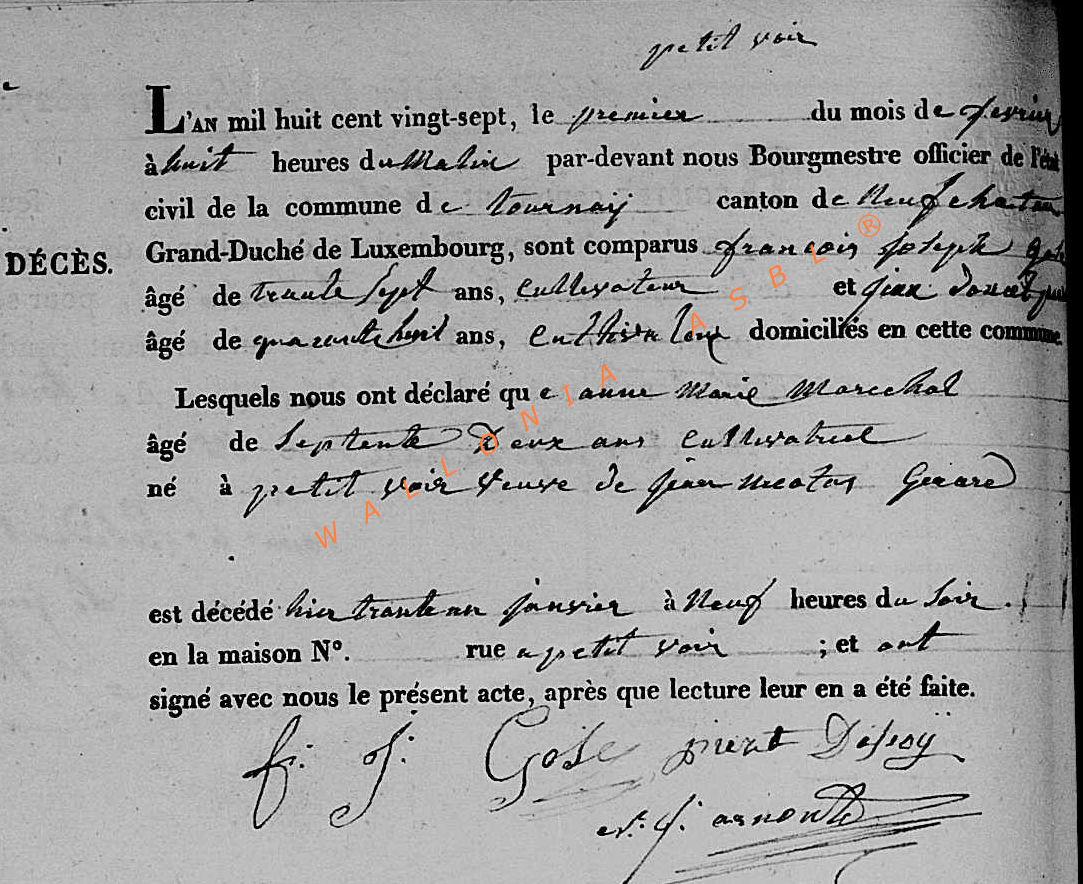 petit voir
L'AN mil huit cent vingt-sept, le premier du mois de fevrier
à huit heures du Matin par-devant nous Bourgmestre officier de l'état
civil de la commune de tournay canton de Neufchateau
DÉCÈS.
Grand-Duché de Luxembourg, sont comparus francois Joseph
âgé de trante Sept ans, Cultivateur et jean
âgé de quarante huit ans, Cultivateur domiciliés en cette commune
Lesquels nous ont déclaré que anne Marie Marechal
âgé de Septente Deux ans Cultivatrice
né à petit voir veuve de jean Girard
est décédé hier trante un janvier à Neuf heures du Soir.
en la maison N°. rue a petit voir ; et ont
signé avec nous le présent acte, après que lecture leur en a été faite.
f: J: Gose
arnould
WALLONIA ASBL ®